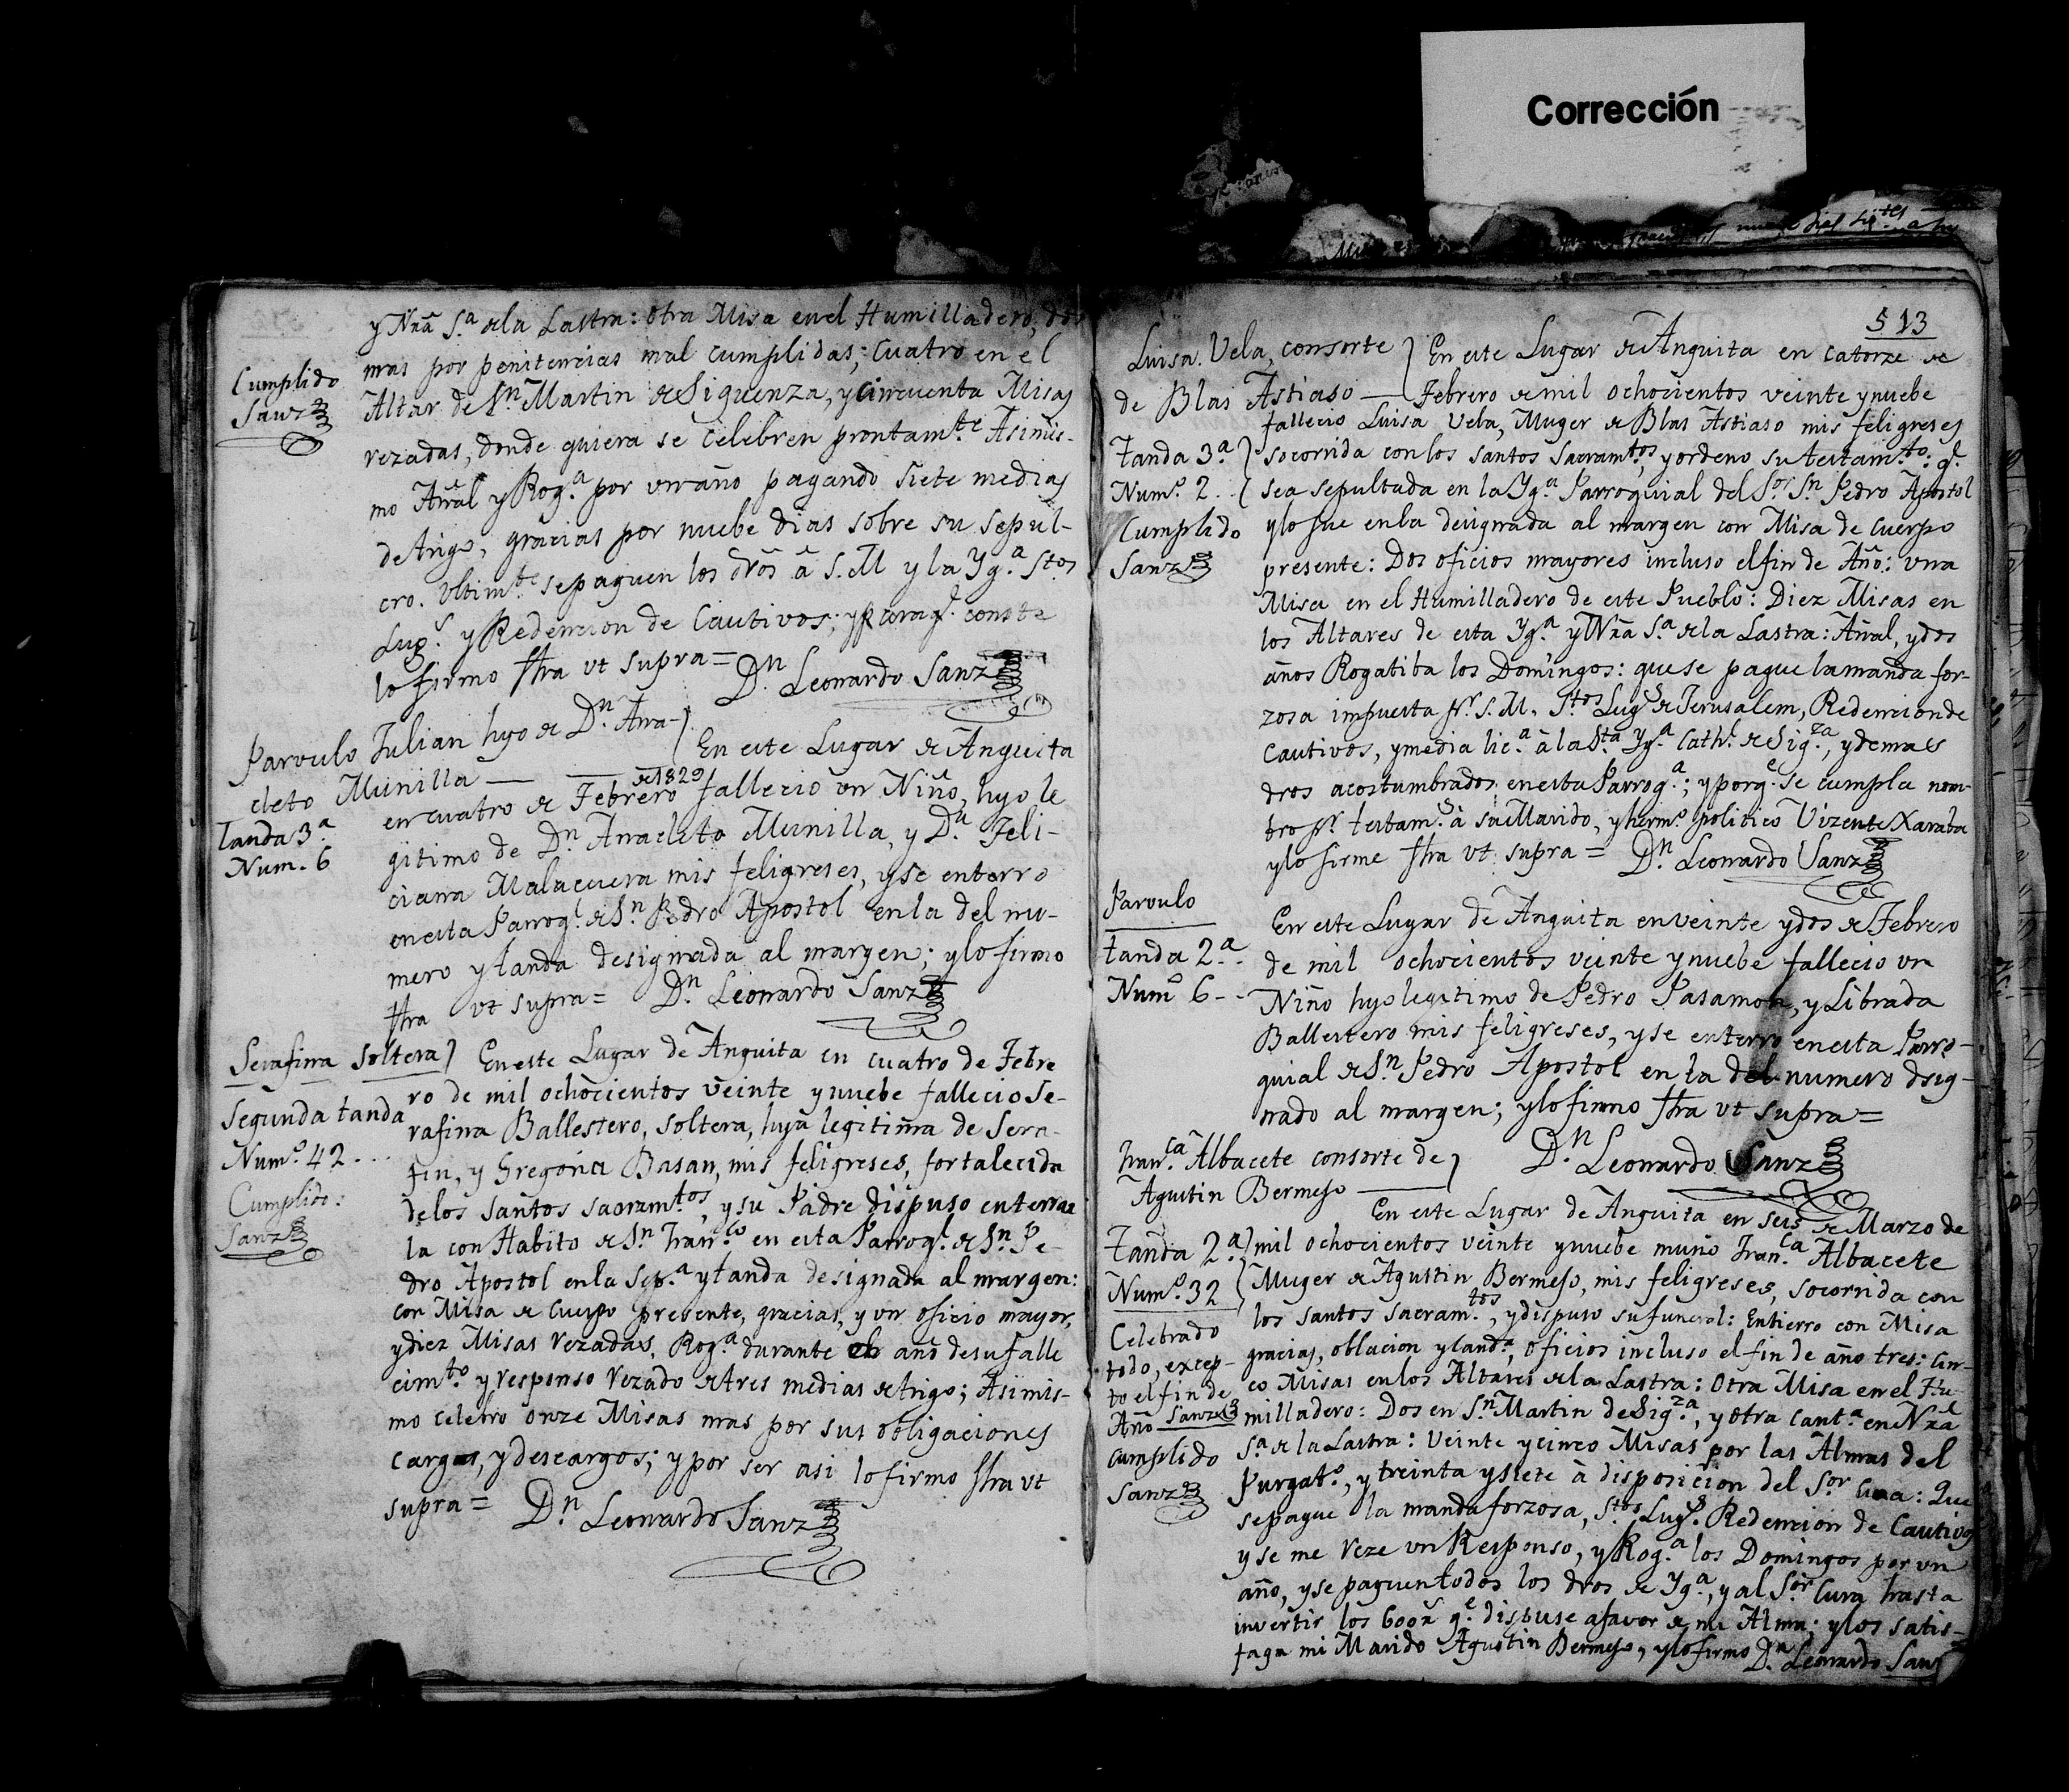 Corrección
y Nrã S.a de la Lastra: otra Misa en el Humilladero, dos
mas por penitencias mal cumplidas; Cuatro en el
Altar de Sn. Martin de Siguenza, y Cincuenta Misas
rezadas, donde quiera se celebren prontam.te Asimis-
mo Añal y Rog.a por un año pagando siete medias
de trigo, gracias por nuebe dias sobre su sepul-
cro. Ultim.te se paguen los drõs â S.M y la Yg.a S.tos
Lug.s y Redencion de Cautivos; y para q.e conste
lo firmo ffha vt supra= Dn. Leonardo Sanz
Cumplido
Sanz
Parvulo Julian hyo de Dn. Ana-
cleto Munilla
En este Lugar de Anguita
en cuatro de Febrero de 1829 fallecio un Niño, hyo le
gitimo de Dn. Anacleto Munilla, y D.a Feli-
ciana Malacuera mis feligreses, y se enterro
en esta Parroq.l de Sn. Pedro Apostol en la del nu-
mero y tanda designada al margen; y lo firmo
ffha vt supra= Dn. Leonardo Sanz
Tanda 3.a
Num. 6
Serafina Soltera
En este Lugar de Anguita en cuatro de Febre
ro de mil ochocientos veinte y nuebe fallecio Se-
rafina Ballestero, soltera, hija legitima de Sera-
fin, y Gregoria Basan, mis feligreses, fortalecida
de los santos sacram.tos, y su Padre dispuso enterrar
la con Habito de Sn. Fran.co en esta Parroq.l de Sn. Pe-
dro Apostol en la Sep.a y tanda designada al margen:
con Misa de Cuerpo presente, gracias, y un oficio mayor,
y diez Misas rezadas, Rog.a durante el año de su falle
cim.to y responso rezado de tres medias de trigo; Asimis-
mo celebro onze Misas mas por sus obligaciones
cargas, y descargos; y por ser asi lo firmo ffha vt
supra= Dn. Leonardo Sanz
Segunda tanda
Num.o 42...
Cumplido:
Sanz
513
Luisa Vela, consorte
de Blas Astiaso
En este Lugar de Anguita en Catorze de
Febrero de mil ochocientos veinte y nuebe
fallecio Luisa Vela, Muger de Blas Astiaso mis feligreses
socorrida con los santos sacramtos, y ordeno su testam.to: q.e
sea sepultada en la Yg.a Parroquial del S.or Sn. Pedro Apostol
y lo fue en la designada al margen con Misa de Cuerpo
presente: Dos oficios mayores incluso el fin de Año: una
Misa en el Humilladero de este Pueblo: Diez Misas en
los Altares de esta Yg.a y Nrã S.a de la Lastra: Añal, y dos
años Rogatiba los Domingos: que se pague la manda for-
zosa impuesta p.r S.M. S.tos Lug.s de Jerusalem, Redencion de
Cautivos, y media lic.a à la Sta. Yg.a Cath.l de Sig.za, y demas
dros acostumbrados en esta Parroq.a; y porq.e se cumpla nom-
bro p.r testam.s à su Marido, y herm.o politico Vizente Xaraba
y lo firme ffha vt supra= Dn. Leonardo Sanz
Tanda 3.a
Num.o 2..
Cumplido
Sanz
Parvulo
En este Lugar de Anguita en veinte y dos de Febrero
de mil ochocientos veinte y nuebe fallecio un
Niño hyo legitimo de Pedro Pasamon, y Librada
Ballestero mis feligreses, y se enterro en esta Parro-
quial de Sn. Pedro Apostol en la del numero dsig-
nado al margen; y lo firmo ffha vt supra=
Dn. Leonardo Sanz
tanda 2.a
Num.o 6
Fran.ca Albacete consorte de
Agustin Bermejo
En este Lugar de Anguita en seis de Marzo de
mil ochocientos veinte y nuebe murio Fran.ca Albacete
Muger de Agustin Bermejo, mis feligreses, socorrida con
los santos sacram.tos, y dispuso su funeral: Entierro con Misa
gracias, oblacion y land.a, oficios incluso el fin de año tres: Cin-
co Misas en los Altares de la Lastra: Otra Misa en el Hu-
milladero: Dos en Sn. Martin de Sig.za, y otra cant.a en Nrã
S.a de la Lastra: veinte y cinco Misas por las Almas del
Purgat.o, y treinta y siete à disposicion del S.or Cura: Que
se pague la manda forzosa, S.tos Lug.s Redencion de Cautivos
y se me reze un Responso, y Rog.a los Domingos por un
año, y se paguen todos los dros de Yg.a, y al S.or Cura hasta
invertir los 600r.s q.e dispuse a favor de mi Alma; y los satis-
faga mi Marido Agustin Bermejo, y lo firmo Dn. Leonardo Sanz
Tanda 2.a
Num.o 32
Celebrado
todo, excep-
to el fin de
Año Sanz
Cumplido
Sanz